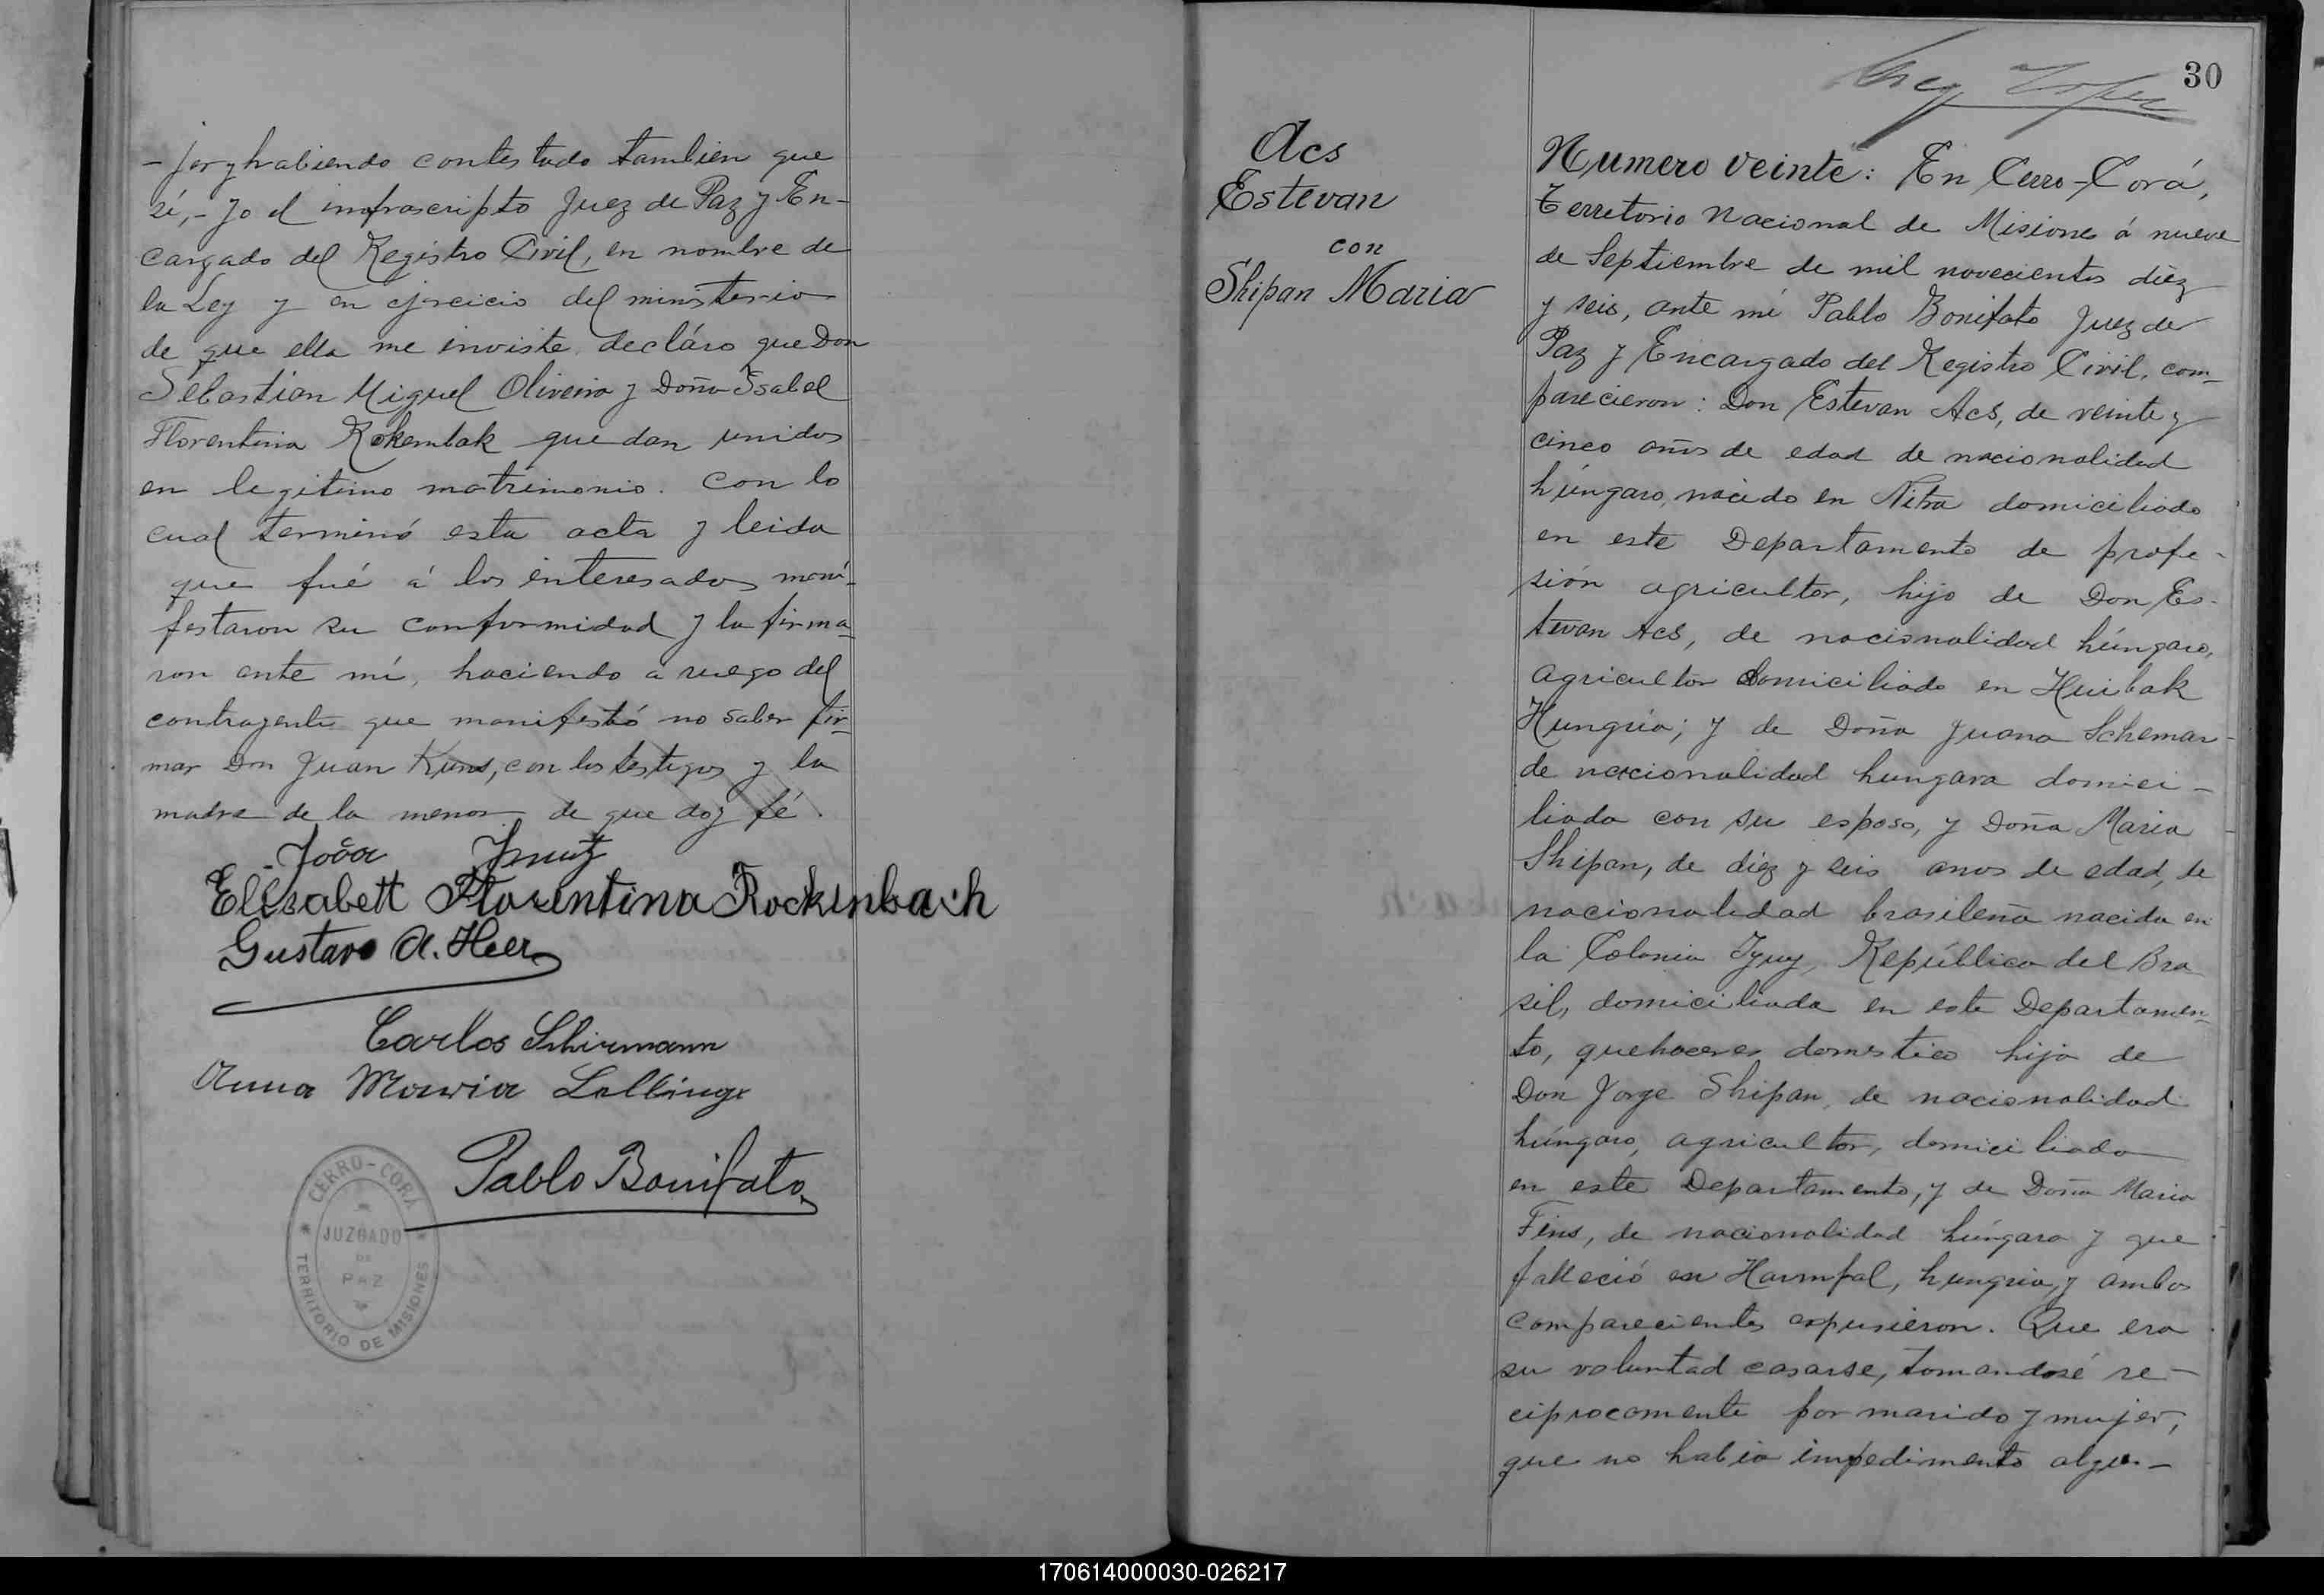 - jer y habiendo contestado tambien que
sí,- yo el infrascripto Juez de Paz y En-
cargado del Registro Civil, en nombre de
la Ley y en ejercicio del ministerio
de que ella me inviste, decláro que Don
Sebastian Miguel Oliveira y Doña Isabel
Florentina Rokembak quedan unidos
en legitimo matrimonio. Con lo
cual terminó esta acta y leida
que fué á los interesados mani-
festaron su conformidad y la firma-
ron ante mí, haciendo a ruego del
contrayente que manifestó no saber fir-
mar Don Juan Kuns, con los testigos y la
madre de la menor de que doy fé.
João
Elisabett Florentina Rockenbach
Gustavo A. Heer
Carlos Schirmann
Anna Maria
Pablo Bonifato
CERRO-CORA
JUZGADO
DE
PAZ
TERRITORIO DE MISIONES
30
Acs
Estevan
con
Shipan Maria
Numero veinte: En Cerro-Corá,
Territorio Nacional de Misiones á nueve
de Septiembre de mil novecientos diez
y seis, ante mí Pablo Bonifato Juez de
Paz y Encargado del Registro Civil, com-
parecieron: Don Estevan Acs, de veinte y
cinco años de edad de nacionalidad
húngaro, nacido en Nitra domiciliado
en este Departamento de profe-
sión agricultor, hijo de Don Es-
tevan Acs, de nacionalidad húngaro,
agricultor domiciliado en Huibak
Hungria; y de Doña Juana Schemar-
de nacionalidad hungara domici-
liada con su esposo, y Doña Maria
Shipan, de diez y seis anos de edad, de
nacionalidad brasileña nacida en
la Colonia Yjuy, República del Bra
sil, domiciliada en este Departamen-
to, quehaceres domestico hija de
Don Jorge Shipan, de nacionalidad
húngaro, agricultor, domiciliado
en este Departamento, y de Doña Maria
Fins, de nacionalidad húngara y que
falleció en Harmfal, hungria, y ambos
comparecientes expusieron. Que era
su voluntad casarse, tomandosé re-
ciprocamente por marido y mujer,
que no habia impedimento algu-
170614000030-026217